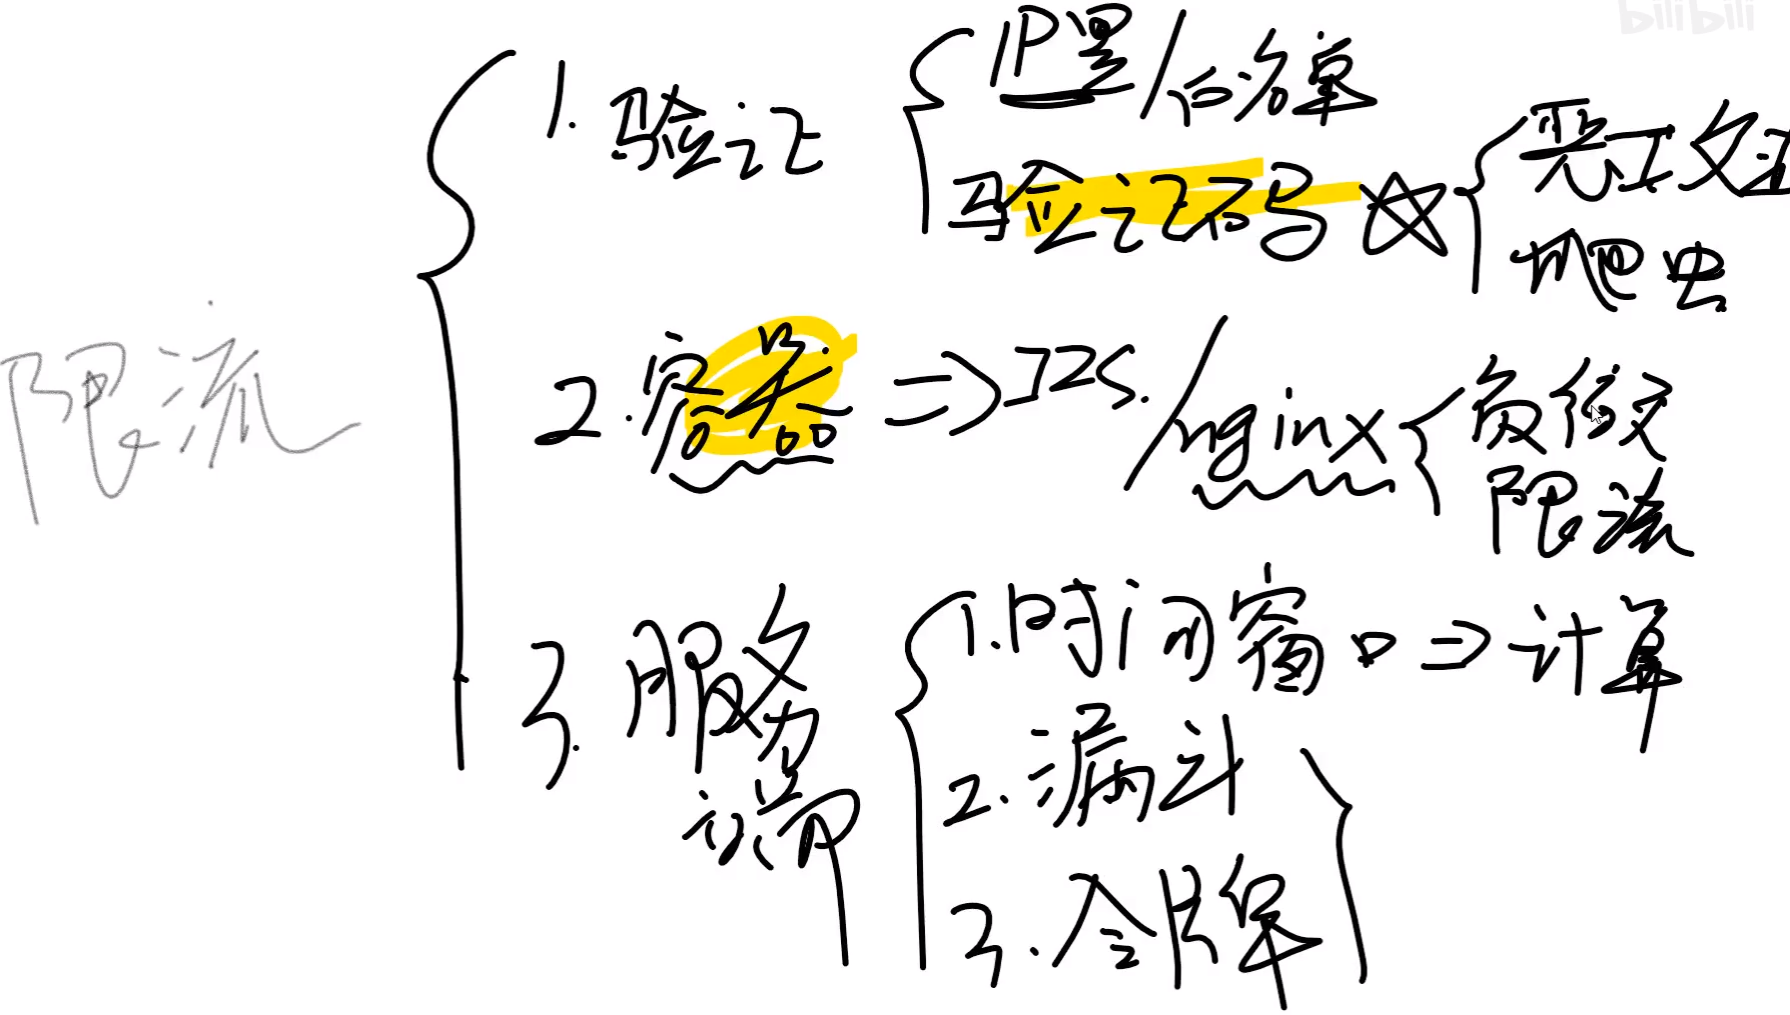 bilibili
限流
1. 验证
IP黑/白名单
验证码
爬虫
2. 容器 => IIS. / nginx
负载
限流
3. 服务端
1. 时间窗口 => 计算
2. 漏斗
3. 令牌